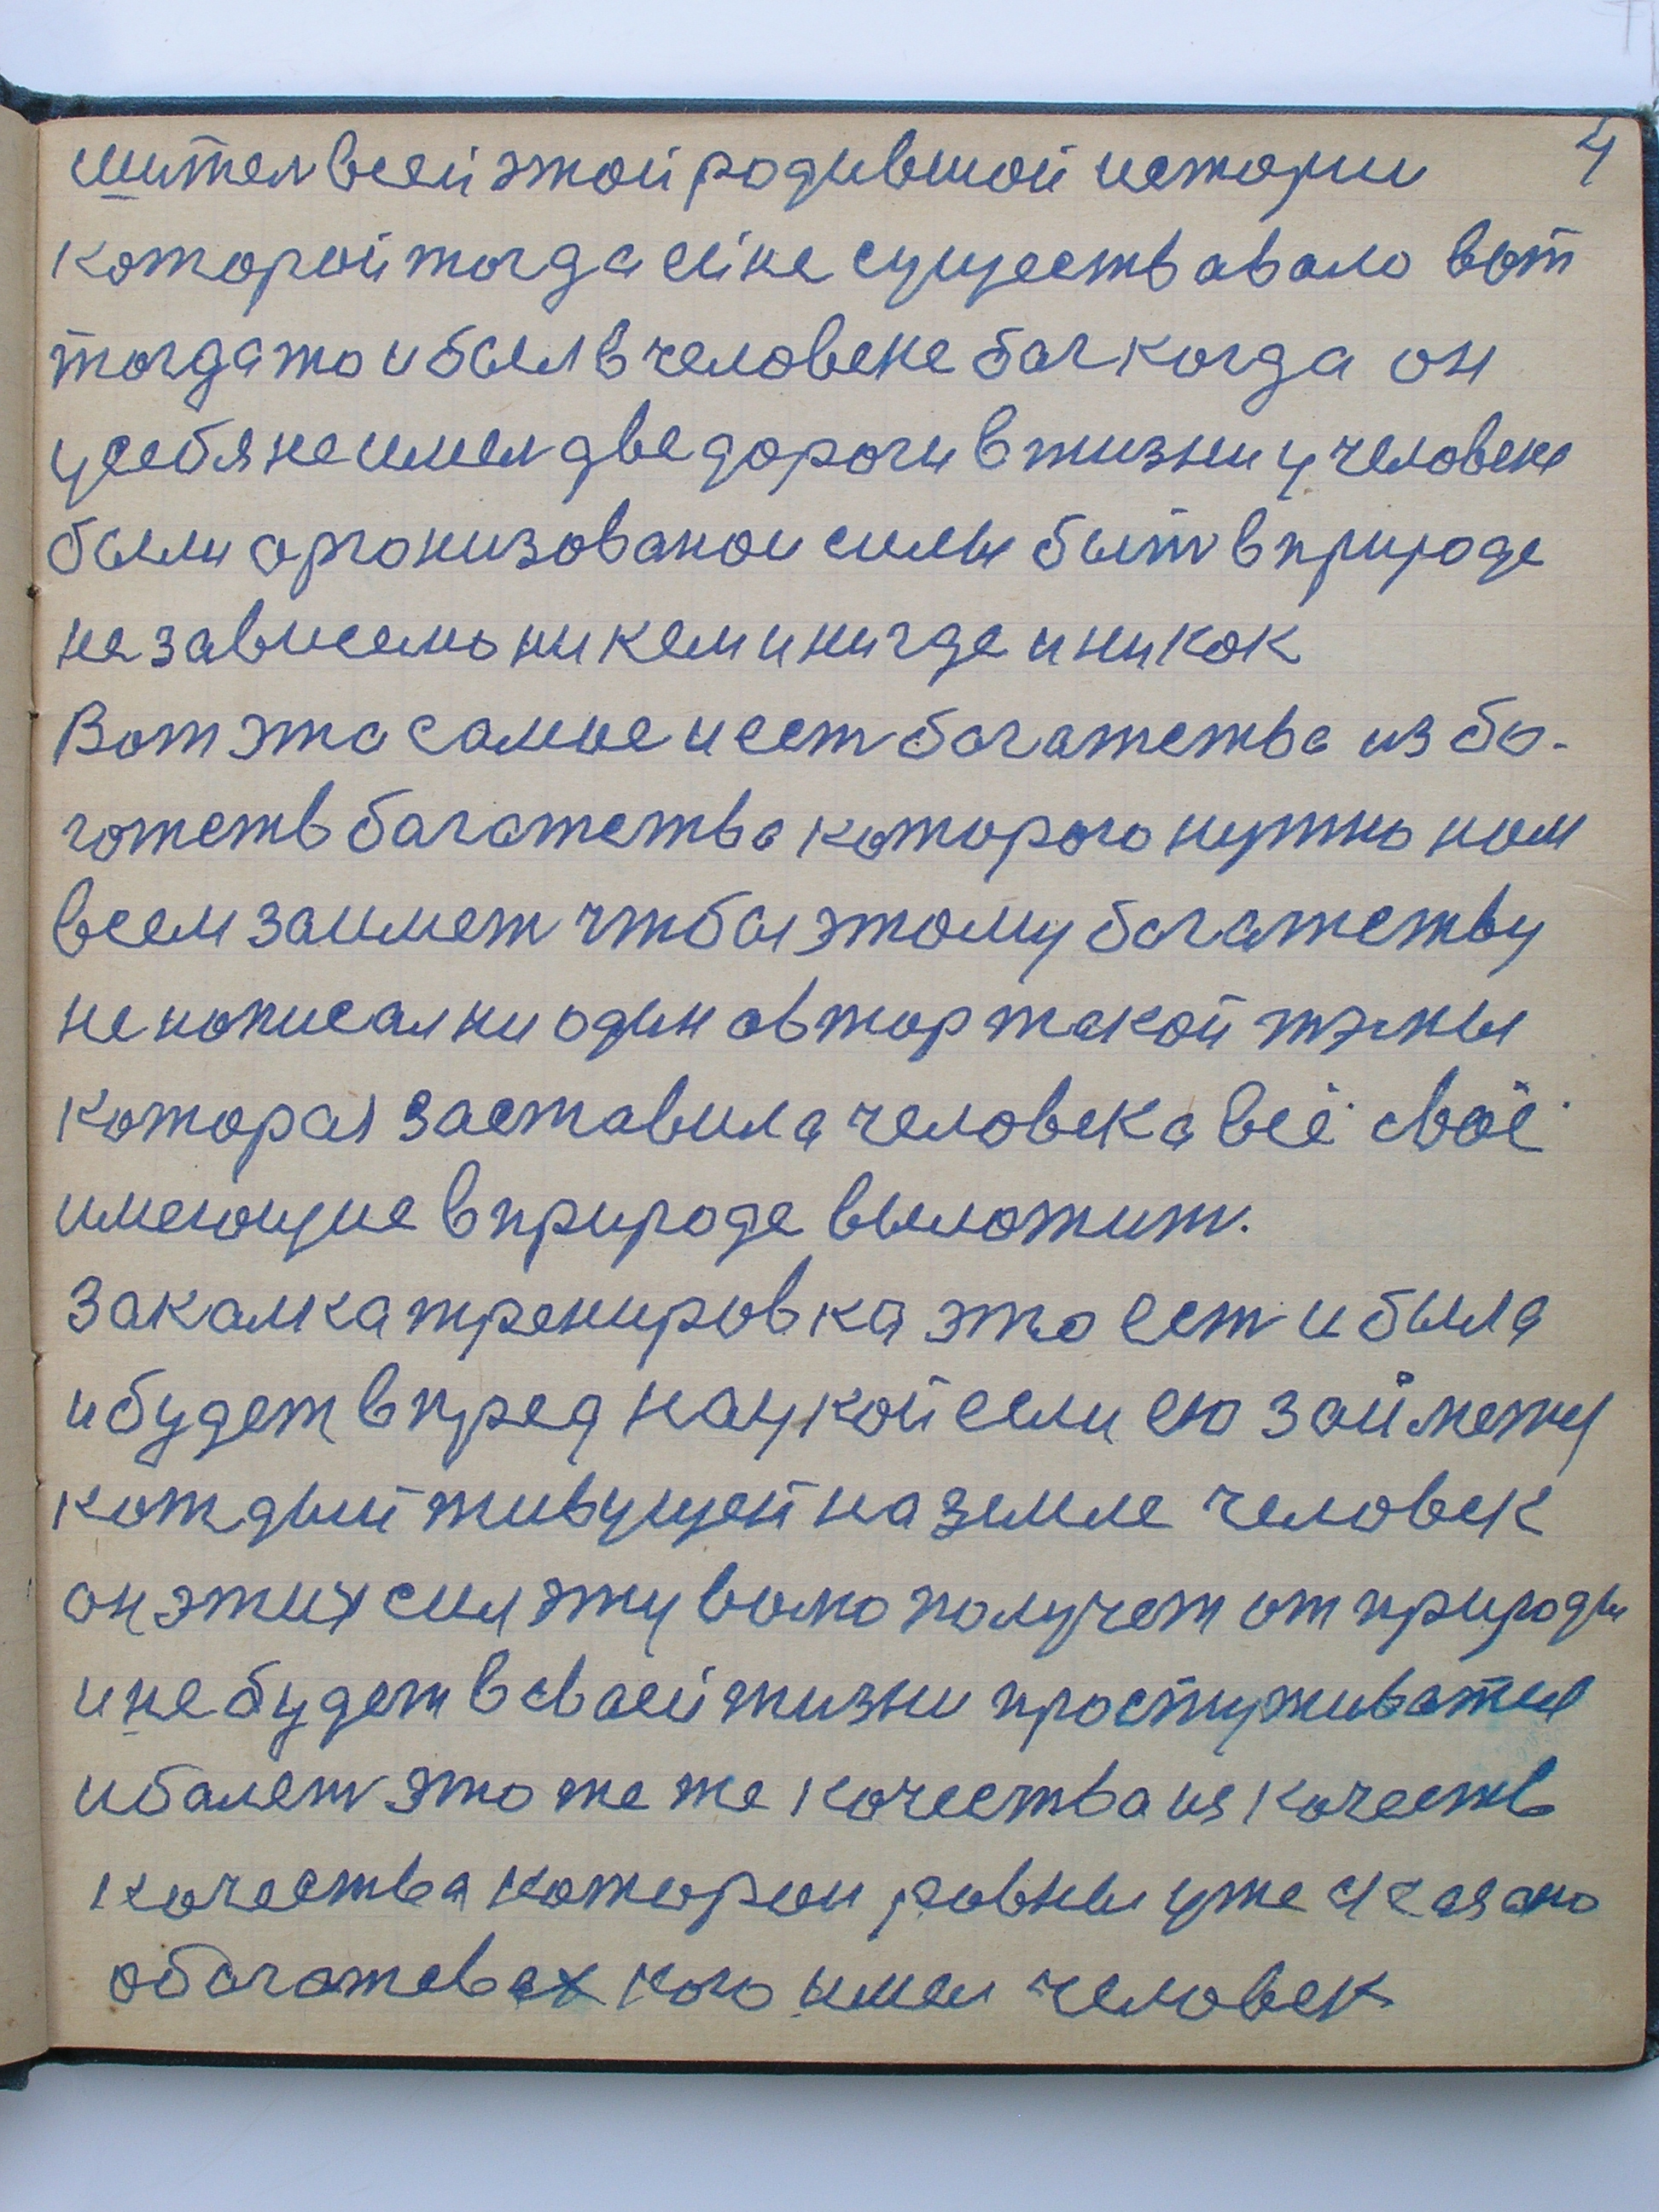 4
шител всей этой родившой истории
которой тогда ей не существавало вот
тогда то и был в человеке бог когда он
у себя не имел две дороги в жизни у человеке
были организованои силы быт в природе
не зависемо ни кем и ни где и ни как
Вот эта самые и ест багатства из ба-
гатств багатства которого нужно нам
всем заимет чтбы этому багатству
не написал ни один автор такой тэмы
которая заставила человека всё своё
имеющие в природе выложит.
Закалка тренировка это ест и была
и будет впред наукой если ею займету
каждый живущей на земле человек
он этих сил эту волю получет от природы
и не будет в сваей жизни простуживатся
и балет это же же качества из качеств
качества которои равны уже сказано
о багатсвах кого имел человек